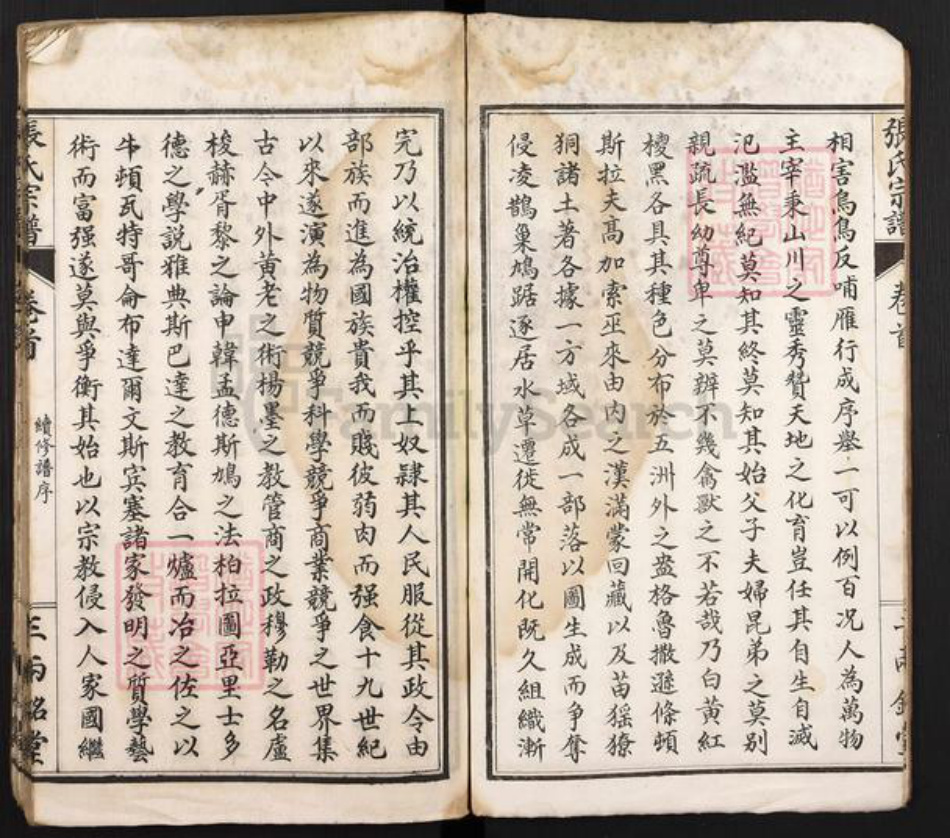 張氏宗譜
卷首
相害烏鳥反哺雁行成序舉一可以例百况人為萬物
主宰秉山川之靈秀贊天地之化育豈任其自生自滅
氾濫無紀莫知其終莫知其始父子夫婦昆弟之莫別
親疏長幼尊卑之莫辨不幾禽獸之不若哉乃白黃紅
椶黑各具其種色分布於五洲外之盎格魯撒遜條頓
斯拉夫高加索巫來由内之漢滿蒙回藏以及苗猺獠
狪諸土著各據一方域各成一部落以圖生成而争奪
侵凌鵲巢鳩踞逐居水草遷徙無常開化既久組織漸
完乃以統治權控乎其上奴隸其人民服從其政令由
部族而進為國族貴我而賤彼弱肉而强食十九世紀
以來遂演為物質競爭科學競爭商業競爭之世界集
古今中外黃老之術楊墨之教管商之政穆勒之名盧
梭赫胥黎之論申韓孟德斯鳩之法柏拉圖亞里士多
德之學説雅典斯巴達之教育合一爐而冶之佐之以
牛頓瓦特哥侖布達爾文斯宾塞諸家發明之質學藝
術而富强遂莫與爭衡其始也以宗教侵入人家國繼
張氏宗譜
卷首
續修譜序
三
兩銘堂
FamilySearch